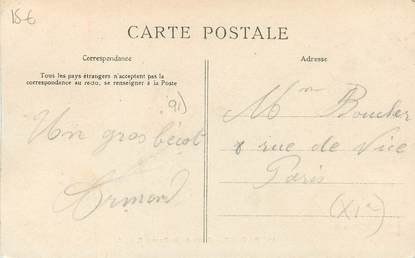 15 €
CARTE POSTALE
Correspondance
Adresse
Tous les pays étrangers n'acceptent pas la
correspondance au recto, se renseigner à la Poste
91)
Un gros bécot
Armand
Mon Boucher
8 rue de Vice
Paris
(XIe)